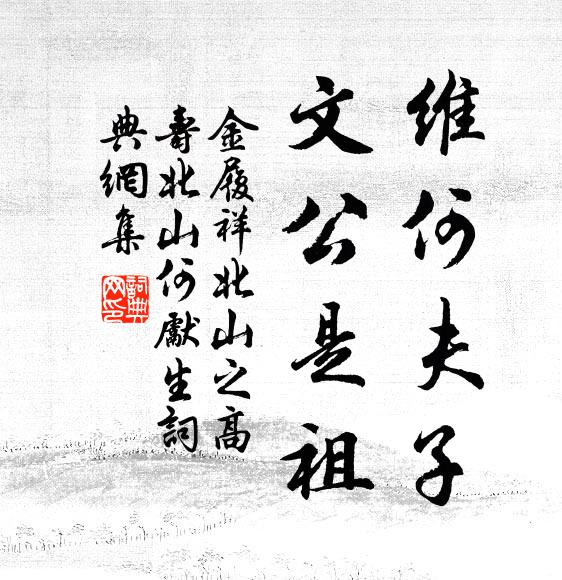 維何夫子
文公是祖
金履祥北山之高
壽北山何獻生詞
典網集
詞典
网印